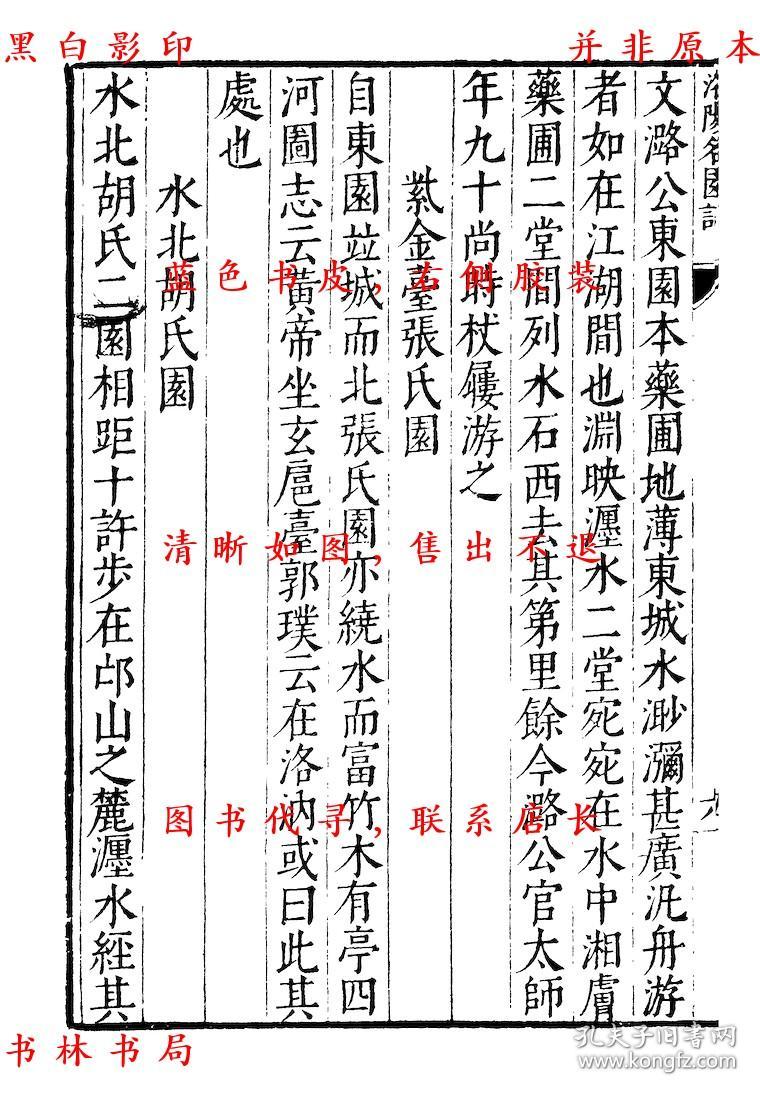 黑白影印
并非原本
洛陽名園記
文潞公東園本藥圃地薄東城水渺瀰甚廣汎舟游
者如在江湖間也淵映瀍水二堂宛宛在水中湘膚
藥圃二堂間列水石西去其第里餘今潞公官太師
年九十尚時杖屨游之
紫金臺張氏園
自東園並城而北張氏園亦繞水而富竹木有亭四
河圖志云黃帝坐玄扈臺郭璞云在洛汭或曰此其
處也
水北胡氏園
水北胡氏二園相距十許步在邙山之麓瀍水經其
蓝色书皮,右侧胶装
清晰如图,售出不退
图书代寻,联系店长
书林书局
孔夫子旧书网
www.kongfz.com